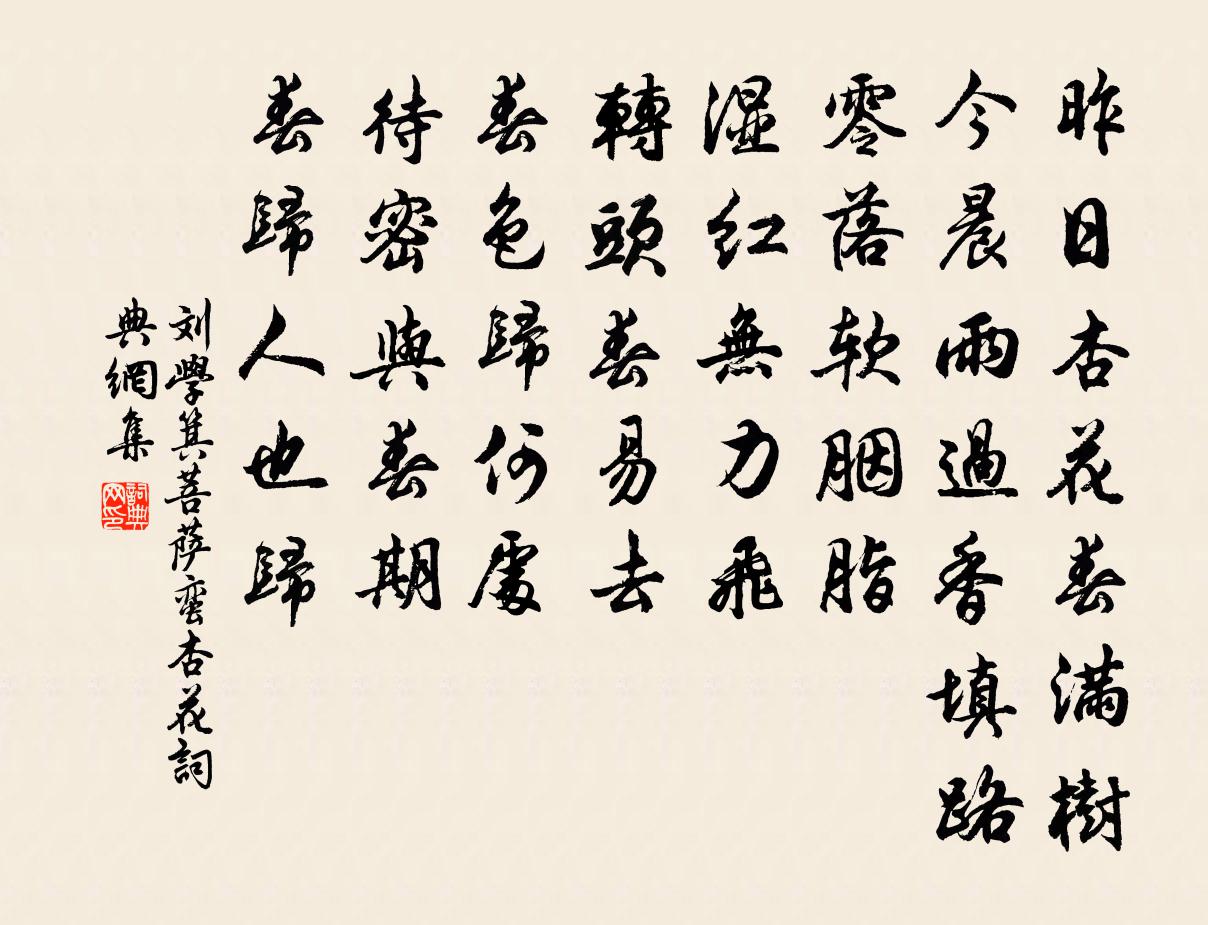 昨日杏花春滿樹
今晨雨過香填路
零落軟胭脂
湿紅無力飛
轉頭春易去
春色歸何處
待密與春期
春歸人也歸
刘學箕菩薩蛮杏花詞
典網集
詞典網印